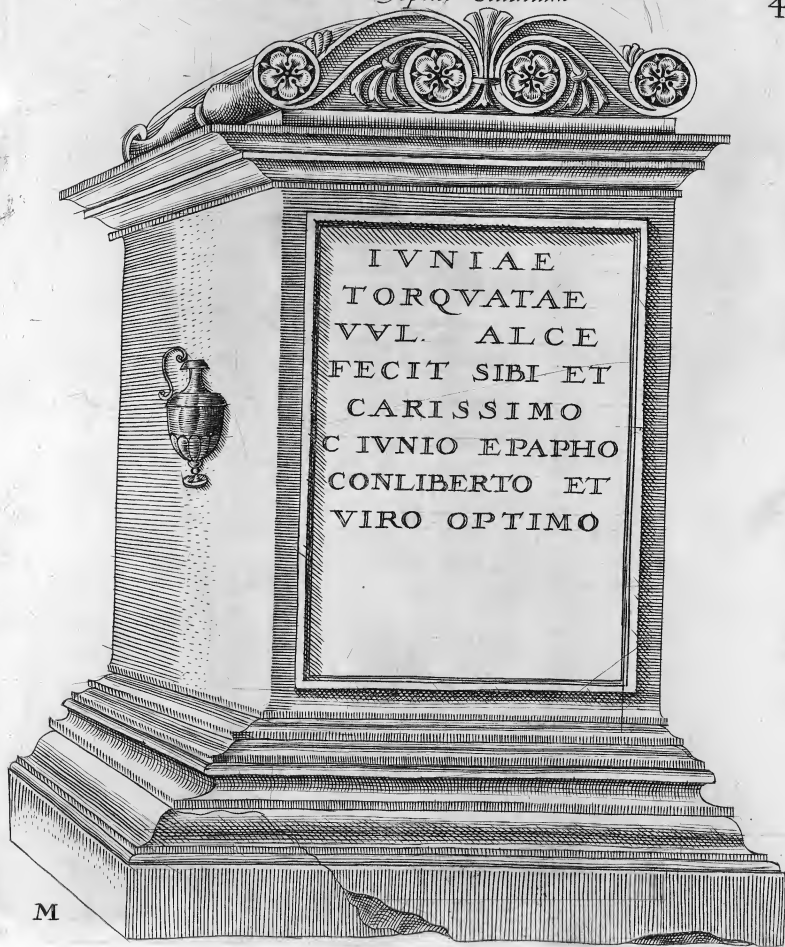 4
IVNIAE
TORQVATAE
VVL. ALCE
FECIT SIBI ET
CARISSIMO
C IVNIO EPAPHO
CONLIBERTO ET
VIRO OPTIMO
M